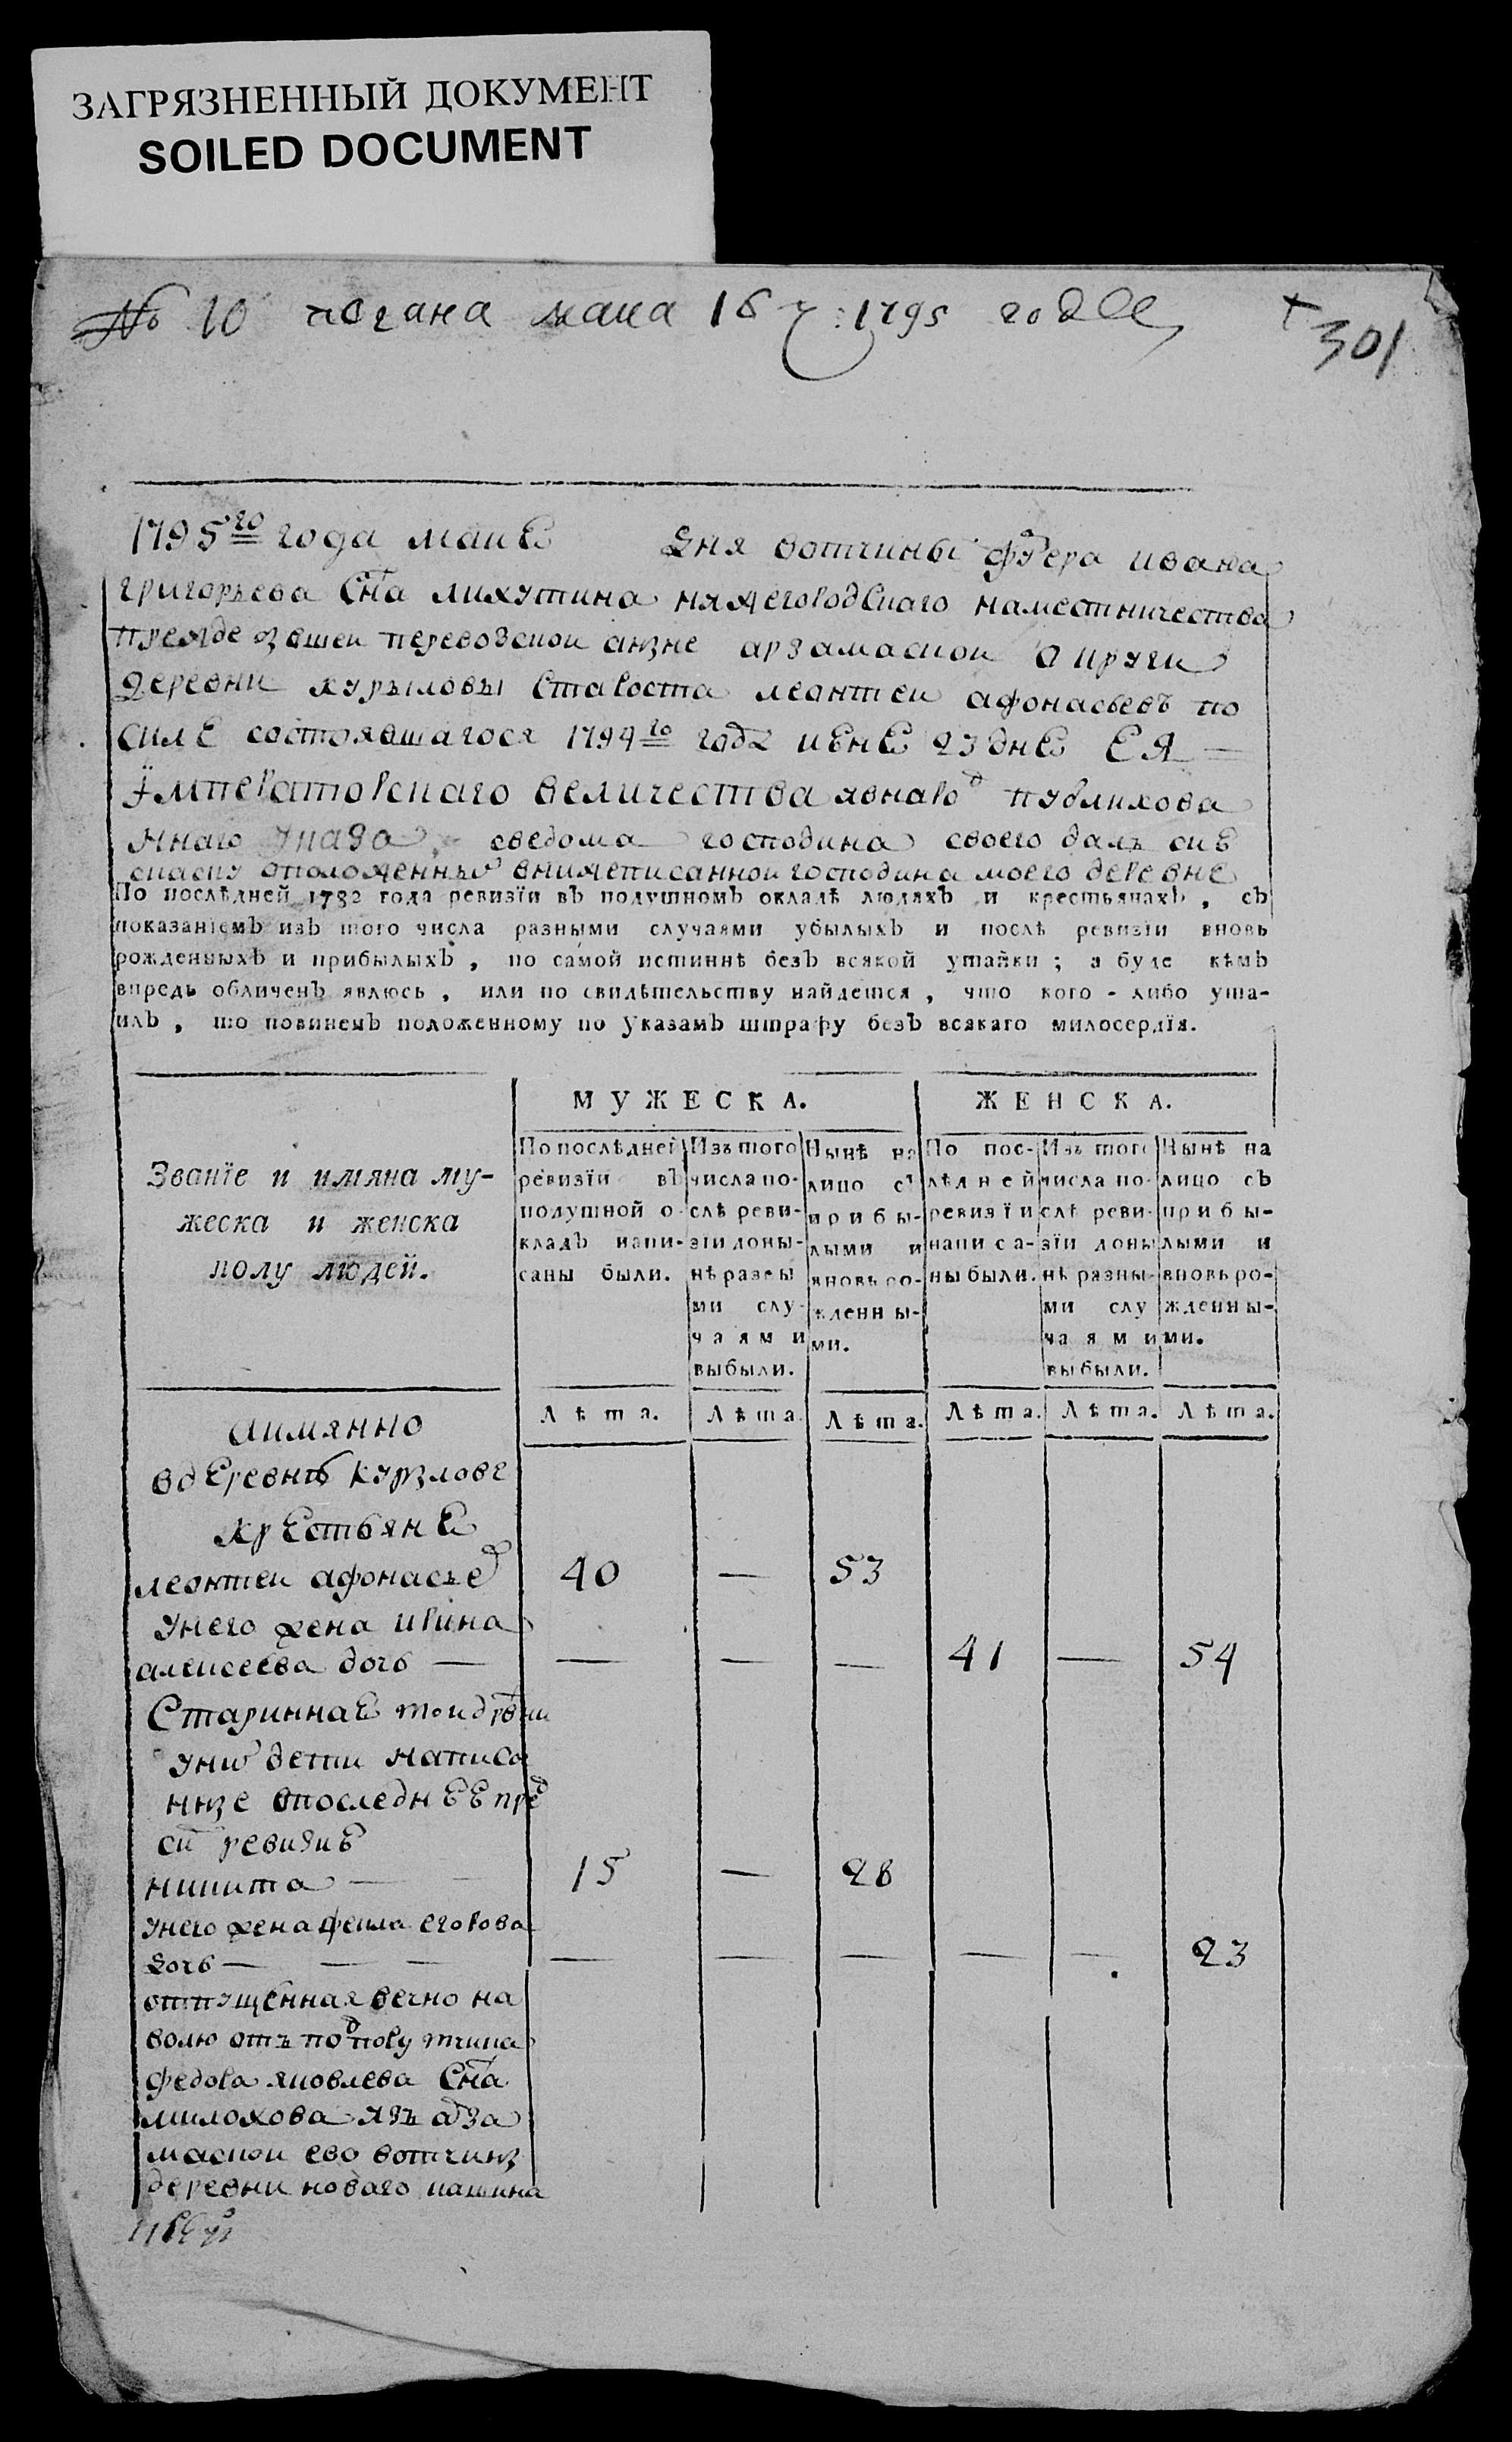 ЗАГРЯЗНЕННЫЙ ДОКУМЕНТ
SOILED DOCUMENT
№ 10 подана маиа 16 ч: 1795 года
301
1795го года маиѣ дня вотчины ивана
григорьева сна лихутина нижегородскаго наместничества
прежде бывшеи перевозскои а ныне арзамаскои округи
деревни курыловы староста леонтеи афонасьевъ по
силе состоявшагося 1794го года июнѣ 23 днѣ ЕЯ
Императорскаго величества публикова
ннаго указа, сведома господина своего далъ сиѣ
скаску оположенны внижеписаннои господина моего деревне
По послѣдней 1782 года ревизїи въ подушномъ окладѣ людяхъ и крестьянахъ, съ
показанїемъ изъ того числа разными случаями убылыхъ и послѣ ревизїи вновь
рожденныхъ и прибылыхъ, по самой истиннѣ безъ всякой утайки; а буде кѣмъ
впредь обличенъ явлюсь, или по свидѣтельству найдется, что кого-либо ута-
илъ, то повиненъ положенному по указамъ штрафу безъ всякаго милосердїя.
МУЖЕСКА. ЖЕНСКА.
Званїе и имяна му-
жеска и женска
полу людей.
По послѣдней
ревизїи въ
подушной о-
кладъ напи-
саны были.
Изъ того
числа по-
слѣ реви-
зїи доны-
нѣ разны
ми слу-
чаями
выбыли.
Нынѣ на
лицо съ
прибы-
лыми и
вновь ро-
жденны-
ми.
По пос-
лѣдней
ревизїи
написа-
ны были.
Изъ того
числа по-
слѣ реви-
зїи доны
нѣ разны-
ми слу
чаями
выбыли.
Нынѣ на
лицо съ
прибы-
лыми и
вновь ро-
жденны-
ми.
Лѣта. Лѣта. Лѣта. Лѣта. Лѣта. Лѣта.
аимянно
вдеревнѣ курылове
крестьянѣ
леонтеи афонасьев 40 — 53
унего жена ирина
алексеева дочь — — — — 41 — 54
Стариннаѣ тои дрвни
уних дети написа
нные впоследнѣѣ пред
сим ревизиѣ
никита — 15 — 28
унего жена фекла егорова
дочь — — — — — — — — 23
отпущенная вечно на
волю отъ подпорутчика
федора яковлева сна
милохова изъ арза
маскои ево вотчины
деревни новаго